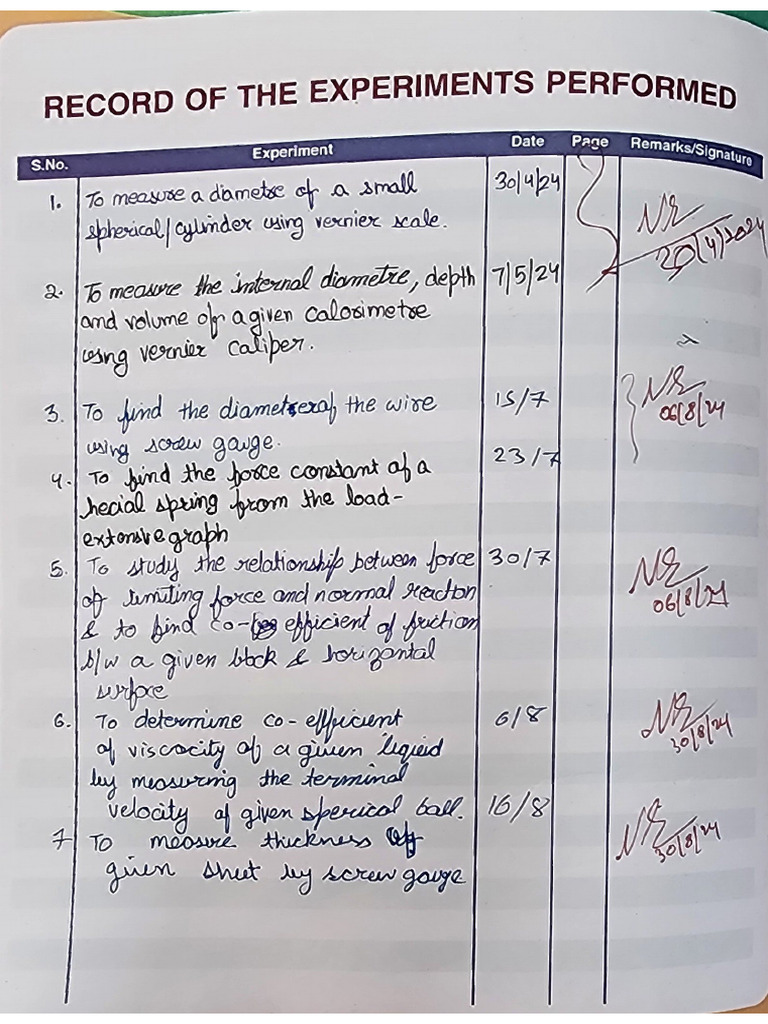 RECORD OF THE EXPERIMENTS PERFORMED
S.No. Experiment Date Page Remarks/Signature
1. To measure a diametre of a small 30/4/24
spherical/cylinder using vernier scale.
20/4/2024
2. To measure the internal diametre, depth 7/5/24
and volume of a given calorimetre
using vernier caliper.
3. To find the diameter of the wire 15/7
06/8/24
using screw gauge.
4. To find the force constant of a 23/7
hecial spring from the load-
extensive graph
5. To study the relationship between force 30/7
of limiting force and normal reaction
06/8/24
& to find co-efficient of friction
b/w a given block & horizontal
surface
6. To determine co-efficient 6/8
30/8/24
of viscocity of a given liquid
by measuring the terminal
velocity of given sperical ball.
7 To measure thickness of 16/8
30/8/24
given sheet by screw gauge